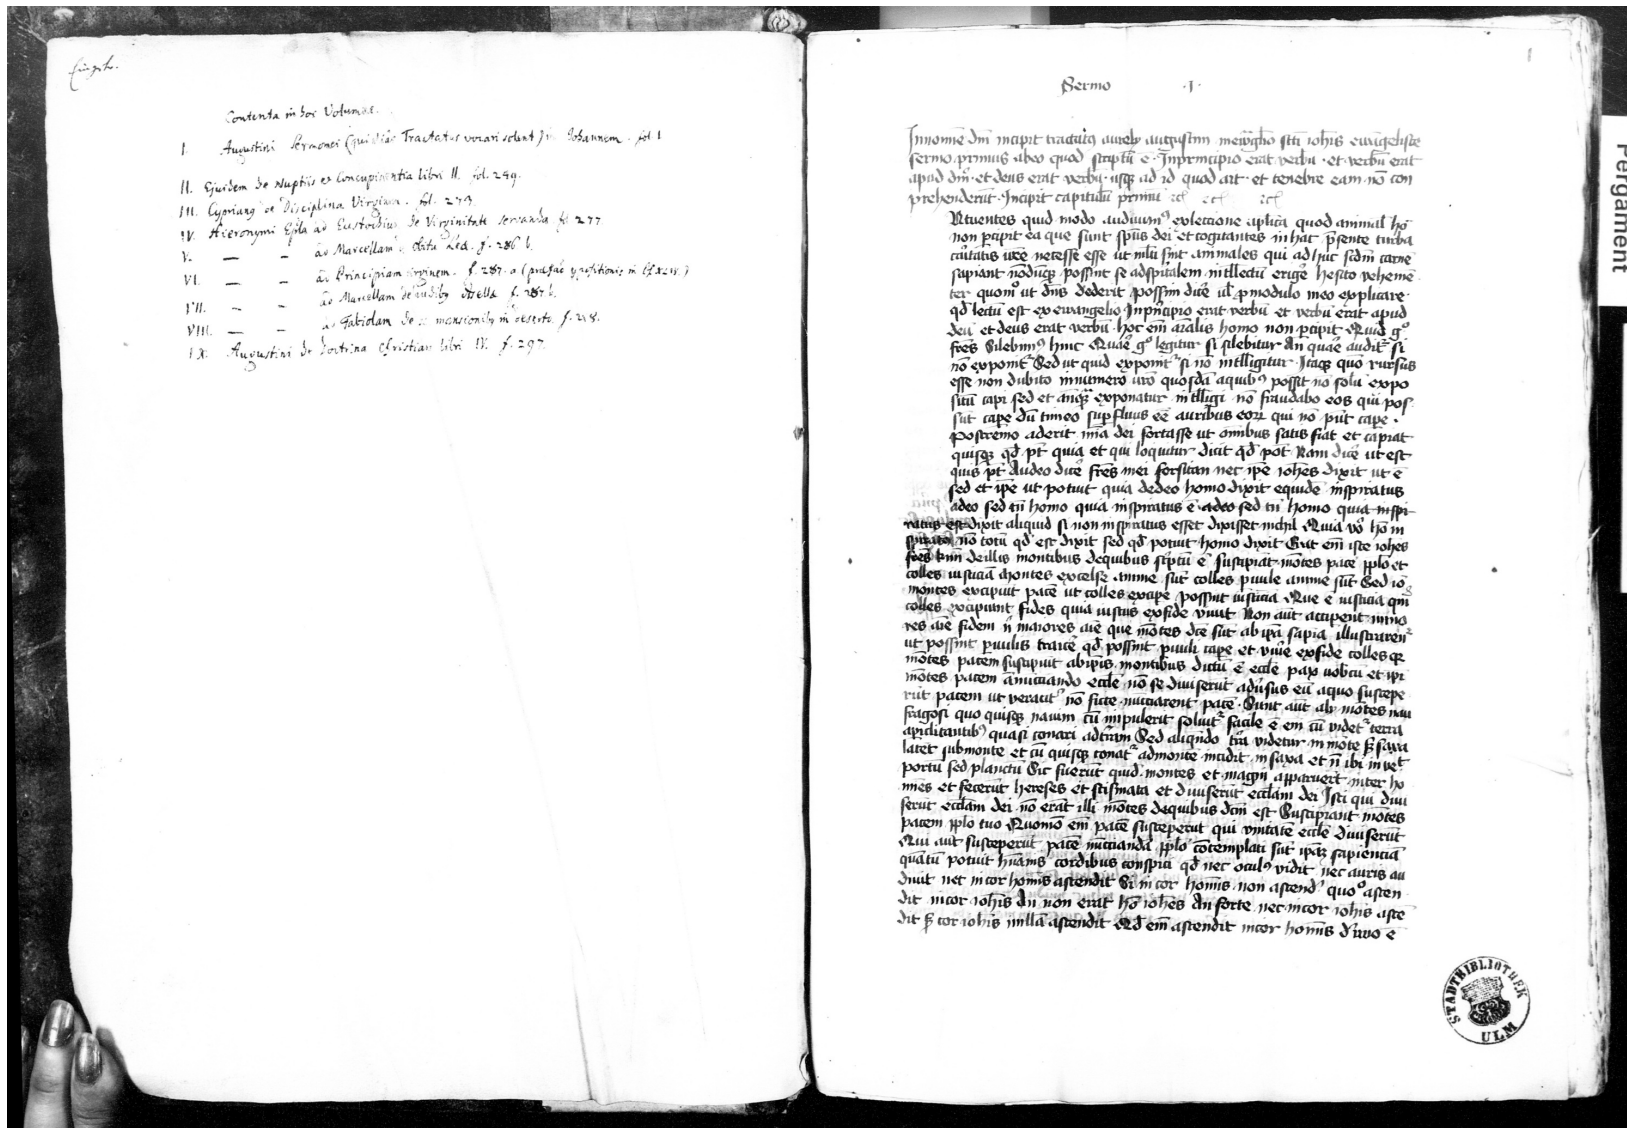 Contenta in hoc Volumine.
I. Augustini Sermones (qui aliàs Tractatus vocari solent) in Johannem. fol. 1
II. Ejusdem de Nuptiis et Concupiscentia libri II. fol. 249.
III. Cyprianus de Disciplina Virginum. fol. 273.
IV. Hieronymi Epistola ad Eustochium de Virginitate servanda f. 277
V. — – ad Marcellam de obitu Leæ. f. 286 b.
VI. — – ad Principiam virginem. f. 287. a (præfat. expositionis in
VII. — – ad Marcellam de laudibus Asellæ f. 287 b.
VIII. — – ad Fabiolam de mansionibus in deserto. f. 288.
IX. Augustini de Doctrina Christiana libri IV. f. 297.
1
Sermo .I.
In nomine dni incipit tractatus aurely augustini in ewangelio scti iohis ewangeliste
sermo primus ab eo quod scriptu e. In principio erat verbu. et verbu erat
apud dm. et deus erat verbu. usque ad id quod ait. et tenebre eam no con
prehenderut. Incipit capitulu primu
Ntuentes quid modo audiuimus ex leccione aplica quod animal ho
non percipit ea que sunt spus dei et cogitantes in hac presente turba
caritatis vre necesse esse ut multi sint animales qui adhuc scdm carne
sapiant nonduque possint se ad spiritalem intellectu erigere hesito vehemen
ter quomo ut dns dederit possim dicere vel pro modulo meo explicare.
qd lectu est ex ewangelio In principio erat verbu et verbu erat apud
deu et deus erat verbu. hoc em aialis homo non percipit. Quid go
fres Silebimus hinc Quare go legitur si silebitur An quare auditur si
no exponitur Sed ut quid exponitur si no intelligitur. Itaque quo rursus
esse non dubito in numero vro quosda a quibus possit no solu expo
situ capi sed et anteque exponatur intelligi no fraudabo eos qui pos
sut capere du timeo superfluus ee auribus eorum qui no put capere.
Postremo aderit mia dei fortasse ut omibus satis fiat et capiat
quisque qd pt quia et qui loquitur dicit qd pot Nam dicere ut est
quis pt Audeo dicere fres mei forsitan nec ipe iohes dixit ut e
sed et ipe ut potuit quia de deo homo dixit equide inspiratus
a deo sed tn homo quia inspiratus e a deo sed tn homo quia inspi
ratus est dixit aliquid si non inspiratus esset dixisset nichil Quia vo ho in
spiratus no totu qd est dixit sed qd potuit homo dixit Erat em iste iohes
fres kmi de illis montibus de quibus scriptu e suscipiat motes pace pplo et
colles iusticia Montes excelse anime sut colles paruule anime sut Sed io
montes excipiut pace ut colles excipere possint iusticia Que e iusticia qm
colles excipiunt fides quia iustus ex fide viuit Non aut acciperent mino
res aie fidem ni maiores aie que motes dce sut ab ipa sapia illustrarentur
ut possint paruulis traicere qd possint paruuli capere et viuere ex fide colles qr
motes pacem suscipiut ab ipis montibus dictu e ecclie pax vobcu et ipi
motes pacem annuciando ecclie no se diuiserut aduersus eu a quo suscepe
rut pacem ut veraciter no ficte nuciarent pace. Sunt aut aly motes nau
fragosi quo quisque nauim cu impulerit soluitur facile e em cu videtur terra
a periclitantibus quasi conari ad terram Sed aliquando terra videtur in mote et saxa
latet sub monte et cu quisque conatur ad monte incidit in saxa et no ibi inuet
portu sed planctu Sic fuerut quida montes et magni apparuert inter ho
mines et fecerut hereses et scismata et diuiserut eccliam dei Isti qui diui
serut eccliam dei no erat illi motes de quibus dcm est Suscipiant motes
pacem pplo tuo Quomo em pace susceperut qui vnitate ecclie diuiserut
Qui aut susceperut pace nucianda pplo contemplati sut ipam sapiencia
quatu potuit humanis cordibus conspici qd nec oculus vidit nec auris au
diuit nec in cor homis ascendit Si in cor homis non ascendit quo ascen
dit in cor iohis An non erat ho iohes An forte nec in cor iohis ascen
dit s cor iohis in illa ascendit Qd em ascendit in cor homis
STADTBIBLIOTHEK
ULM
Pergament